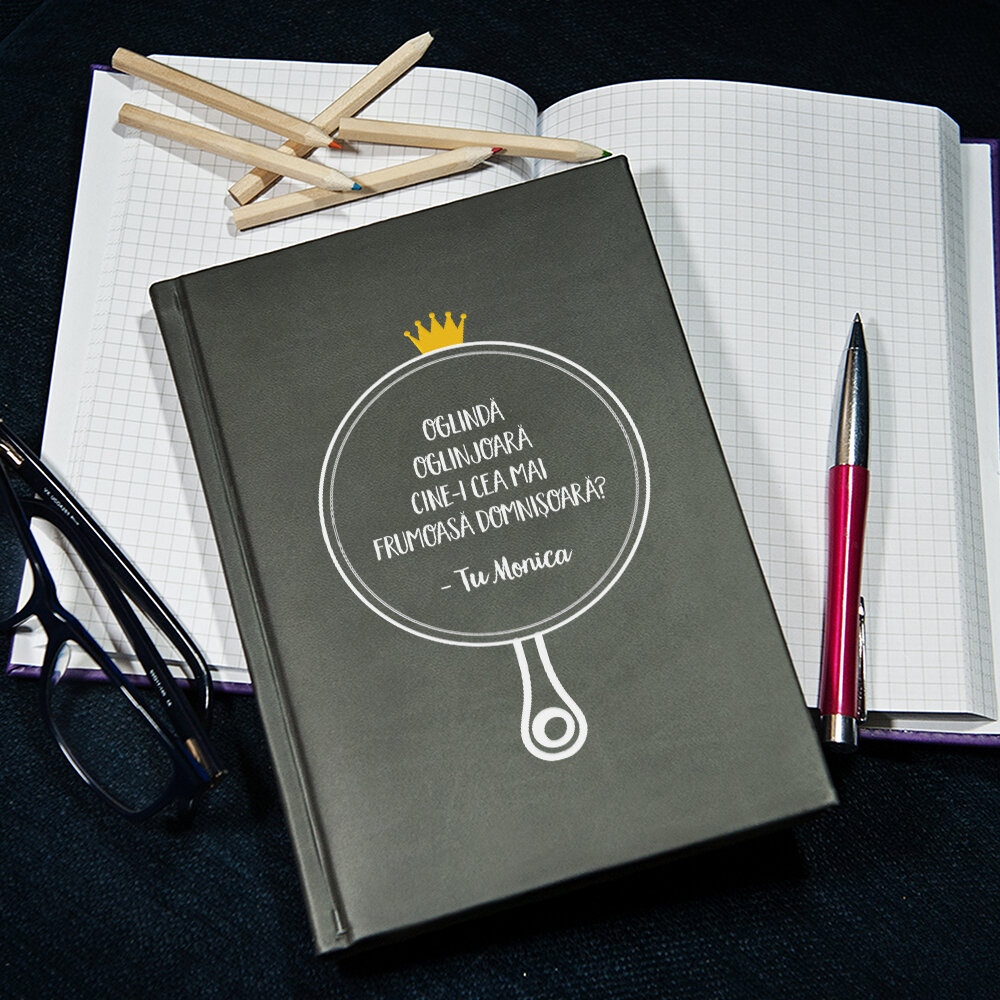 OGLINDĂ
OGLINJOARĂ
CINE-I CEA MAI
FRUMOASĂ DOMNIȘOARĂ?
- Tu Monica